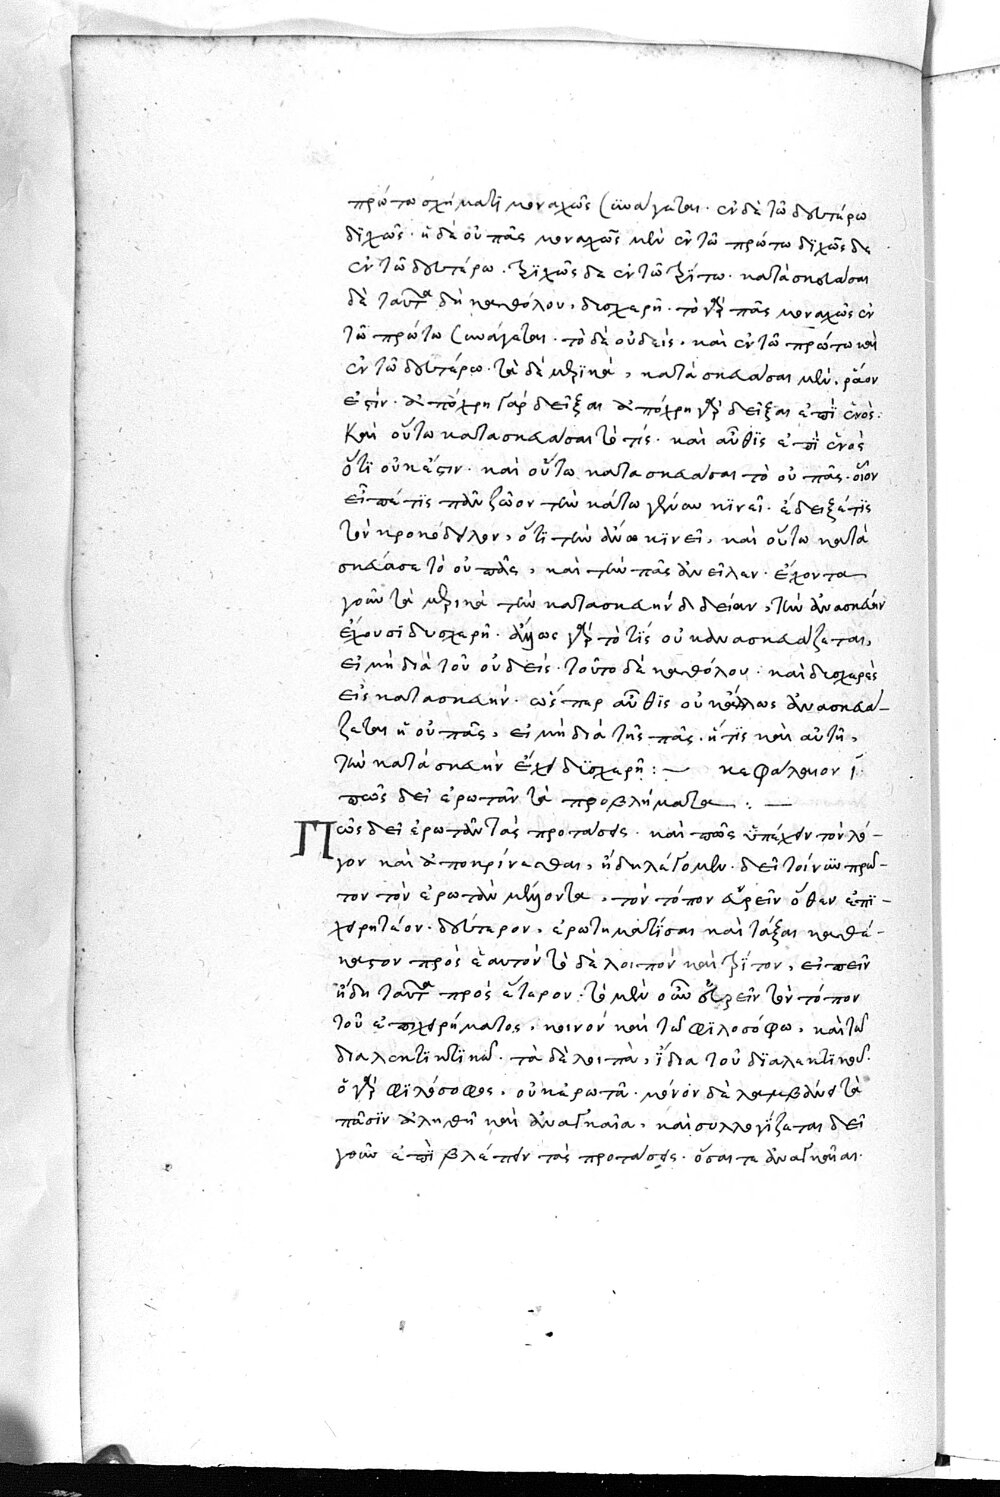 πρώτω σχήματϊ μοναχῶς συνάγεται· ἐν δὲ τῶ δευτέρω
διχῶς· ἡ δὲ οὐ πᾶς μοναχῶς μὲν ἐν τῶ πρώτω διχῶς δὲ
ἐν τῶ δευτέρω· τριχῶς δὲ ἐν τῶ τρίτω· κατασκευάσαι
δὲ ταῦτα δὴ καθόλου, δυσχερῆ· τὸ γὰρ πᾶς μοναχῶς ἐν
τῶ πρώτω συνάγεται· τὸ δὲ οὐδεὶς, καὶ ἐν τῶ πρώτω καὶ
ἐν τῶ δευτέρω· τὰ δὲ μερικὰ, κατασκευάσαι μὲν, ρᾶον
ἐστὶν· ἀπόχρη γὰρ δεῖξαι ἀπόχρη γὰρ δεῖξαι ἐπὶ ἑνὸς·
Καὶ οὕτω κατασκευάσαι τὸ τίς· καὶ αὖθϊς ἐπὶ ἑνὸς
ὅτϊ οὐκ ἔστιν· καὶ οὕτω κατασκευάσαι τὸ οὐ πᾶς· οἷον
εἶπέ τις πᾶν ζῶον τὴν κάτω γένυν κϊνεῖ· ἔδειξέ τϊς
τὸν κροκόδειλον, ὅτϊ τὴν ἄνω κϊνεῖ, καὶ οὕτω κατε
σκεύασε τὸ οὐ πᾶς, καὶ τὴν πᾶς ἀνεῖλεν· ἔχοντα
γοῦν τὰ μερικὰ τὴν κατασκευὴν εὐδείαν, τὴν ἀνασκευὴν
ἔχουσϊ δυσχερῆ· ἄλλως γὰρ τὸ τὶς οὐκ ἀνασκευάζεται,
εἰ μὴ διὰ τοῦ οὐδεὶς· τοῦτο δὲ καθόλου· καὶ δυσχερὲς
εἰς κατασκευὴν· ὥσπερ αὖθϊς οὐκ ἄλλως ἀνασκευά-
ζεται ἢ οὐ πᾶς, εἰ μὴ διὰ τῆς πᾶς, ἥτϊς καὶ αὐτὴ,
τὴν κατασκευὴν ἔχει δϋσχερῆ:— κεφάλαιον ϊ
πῶς δεῖ ἐρωτᾶν τὰ προβλήματα:—
Πῶς δεῖ ἐρωτᾶν τὰς προτάσεις· καὶ πῶς ὑπέχειν τὸν λό-
γον καὶ ἀποκρίνεσθαι, ἤδη λέγομεν· δεῖ τοίνυν πρῶ-
τον τὸν ἐρωτᾶν μέλλοντα, τὸν τόπον εὑρεῖν ὅθεν ἐπϊ-
χειρητέον· δεύτερον, ἐρωτηματίσαι καὶ τάξαι καθέ-
καστον πρὸς ἑαυτὸν τὸ δὲ λοιπὸν καὶ τρίτον, εἰπεῖν
ἤδη ταῦτα πρὸς ἕτερον· τὸ μὲν οὖν εὑρεῖν τὸν τόπον
τοῦ ἐπιχειρήματος, κοινὸν καὶ τῶ φϊλοσόφω, καὶ τῶ
διαλεκτϊκτϊκῶ· τὰ δὲ λοιπὰ, ἴδια τοῦ δϊαλεκτϊκοῦ·
ὁ γὰρ φϊλόσοφος, οὐκ ἐρωτᾶ· μόνον δὲ λαμβάνει τὰ
πᾶσϊν ἀληθῆ καὶ ἀναγκαῖα, καὶ συλλογίζεται δεῖ
γοῦν ἐπϊβλέπειν τὰς προτάσεις· ὅσαι τε ἀναγκαῖαι·